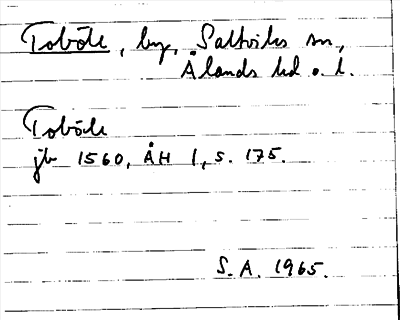 Toböle, by, Saltviks sn,
Ålands hd o. l.
Toböle
jb 1560, ÅH 1, s. 175.
S. A. 1965.